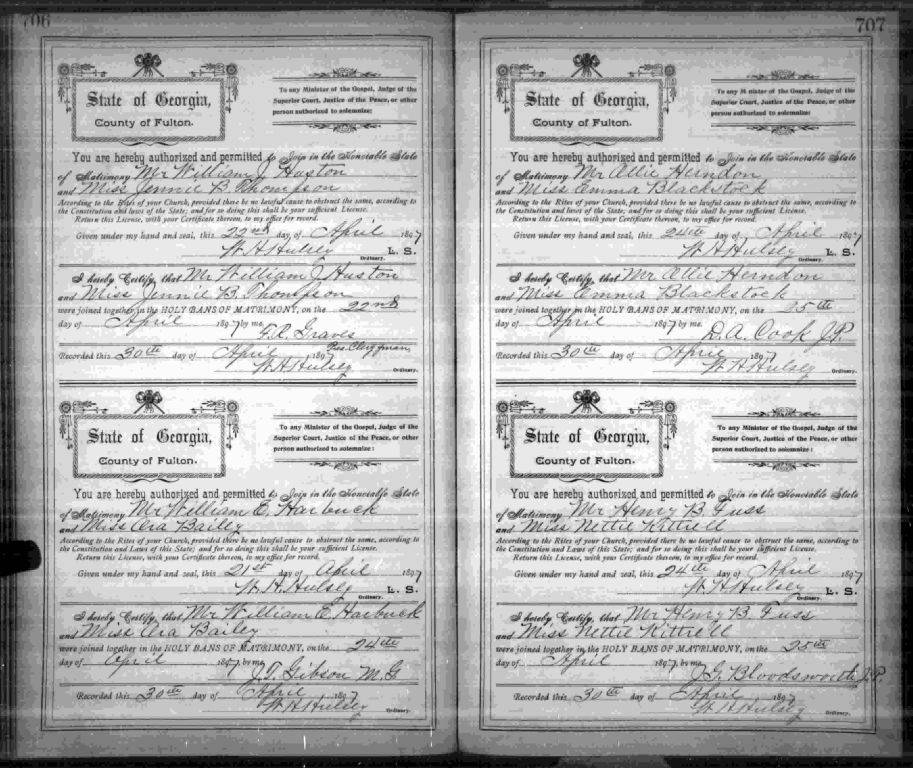 706
State of Georgia,
County of Fulton.
To any Minister of the Gospel, Judge of the
Superior Court, Justice of the Peace, or other
person authorized to solemnize:
You are hereby authorized and permitted to Join in the Honorable State
of Matrimony Mr William J Huston
and Miss Jennie B Thompson
According to the Rites of your Church, provided there be no lawful cause to obstruct the same, according to
the Constitution and laws of the State; and for so doing this shall be your sufficient License.
Return this License, with your Certificate thereon, to my office for record.
Given under my hand and seal, this 22nd day of April 1897
W. H. Hulsey L. S.
Ordinary.
I hereby Certify, that Mr William J Huston
and Miss Jennie B. Thompson
were joined together in the HOLY BANS OF MATRIMONY, on the 22nd
day of April 1897 by me
F. R. Graves
Clergyman
Recorded this 30th day of April 1897
W. H. Hulsey
Ordinary.
State of Georgia,
County of Fulton.
To any Minister of the Gospel, Judge of the
Superior Court, Justice of the Peace, or other
person authorized to solemnize:
You are hereby authorized and permitted to Join in the Honorable State
of Matrimony Mr William E. Harbuck
and Miss Ora Bailey
According to the Rites of your Church, provided there be no lawful cause to obstruct the same, according to
the Constitution and Laws of this State; and for so doing this shall be your sufficient License.
Return this License, with your Certificate thereon, to my office for record.
Given under my hand and seal, this 21st day of April 1897
W. H. Hulsey L. S.
Ordinary.
I hereby Certify, that Mr William E. Harbuck
and Miss Ora Bailey
were joined together in the HOLY BANS OF MATRIMONY, on the 24th
day of April 1897 by me
J. T. Gibson M.G
Recorded this 30th day of April 1897
W. H. Hulsey
Ordinary.
707
State of Georgia,
County of Fulton.
To any Minister of the Gospel, Judge of the
Superior Court, Justice of the Peace, or other
person authorized to solemnize:
You are hereby authorized and permitted to Join in the Honorable State
of Matrimony Mr Allie Herndon
and Miss Emma Blackstock
According to the Rites of your Church, provided there be no lawful cause to obstruct the same, according to
the Constitution and laws of the State; and for so doing this shall be your sufficient License.
Return this License, with your Certificate thereon, to my office for record.
Given under my hand and seal, this 24th day of April 1897
W. H. Hulsey L. S.
Ordinary.
I hereby Certify, that Mr Allie Herndon
and Miss Emma Blackstock
were joined together in the HOLY BANS OF MATRIMONY, on the 25th
day of April 1897 by me
D. A. Cook J.P.
Recorded this 30th day of April 1897
W. H. Hulsey
Ordinary.
State of Georgia,
County of Fulton.
To any Minister of the Gospel, Judge of the
Superior Court, Justice of the Peace, or other
person authorized to solemnize:
You are hereby authorized and permitted to Join in the Honorable State
of Matrimony Mr Henry B. Fuss
and Miss Nettie Kittrell
According to the Rites of your Church, provided there be no lawful cause to obstruct the same, according to
the Constitution and Laws of this State; and for so doing this shall be your sufficient License.
Return this License, with your Certificate thereon, to my office for record.
Given under my hand and seal, this 24th day of April 1897
W. H. Hulsey L. S.
Ordinary.
I hereby Certify, that Mr Henry B. Fuss
and Miss Nettie Kittrell
were joined together in the HOLY BANS OF MATRIMONY, on the 25th
day of April 1897 by me
J. G. Bloodsworth J.P.
Recorded this 30th day of April 1897
W. H. Hulsey
Ordinary.